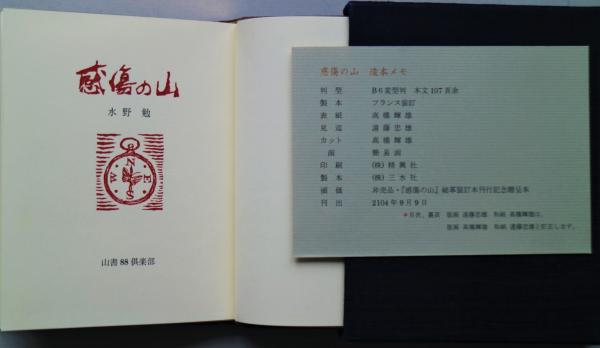 感傷の山
水野 勉
N
W E
S
山書88倶楽部
感傷の山 造本メモ
判型 B6変型判 本文197頁余
製本 フランス装訂
表紙 高橋輝雄
見返 遠藤忠雄
カット 高橋輝雄
函 懸嘉函
印刷 (株)精興社
製本 (株)三水社
頒価 非売品・『感傷の山』総革装訂本刊行記念贈呈本
刊出 2104年9月9日
*目次、裏表 版画 遠藤忠雄 和紙 高橋輝雄は、
版画 高橋輝雄 和紙 遠藤忠雄と訂正します。